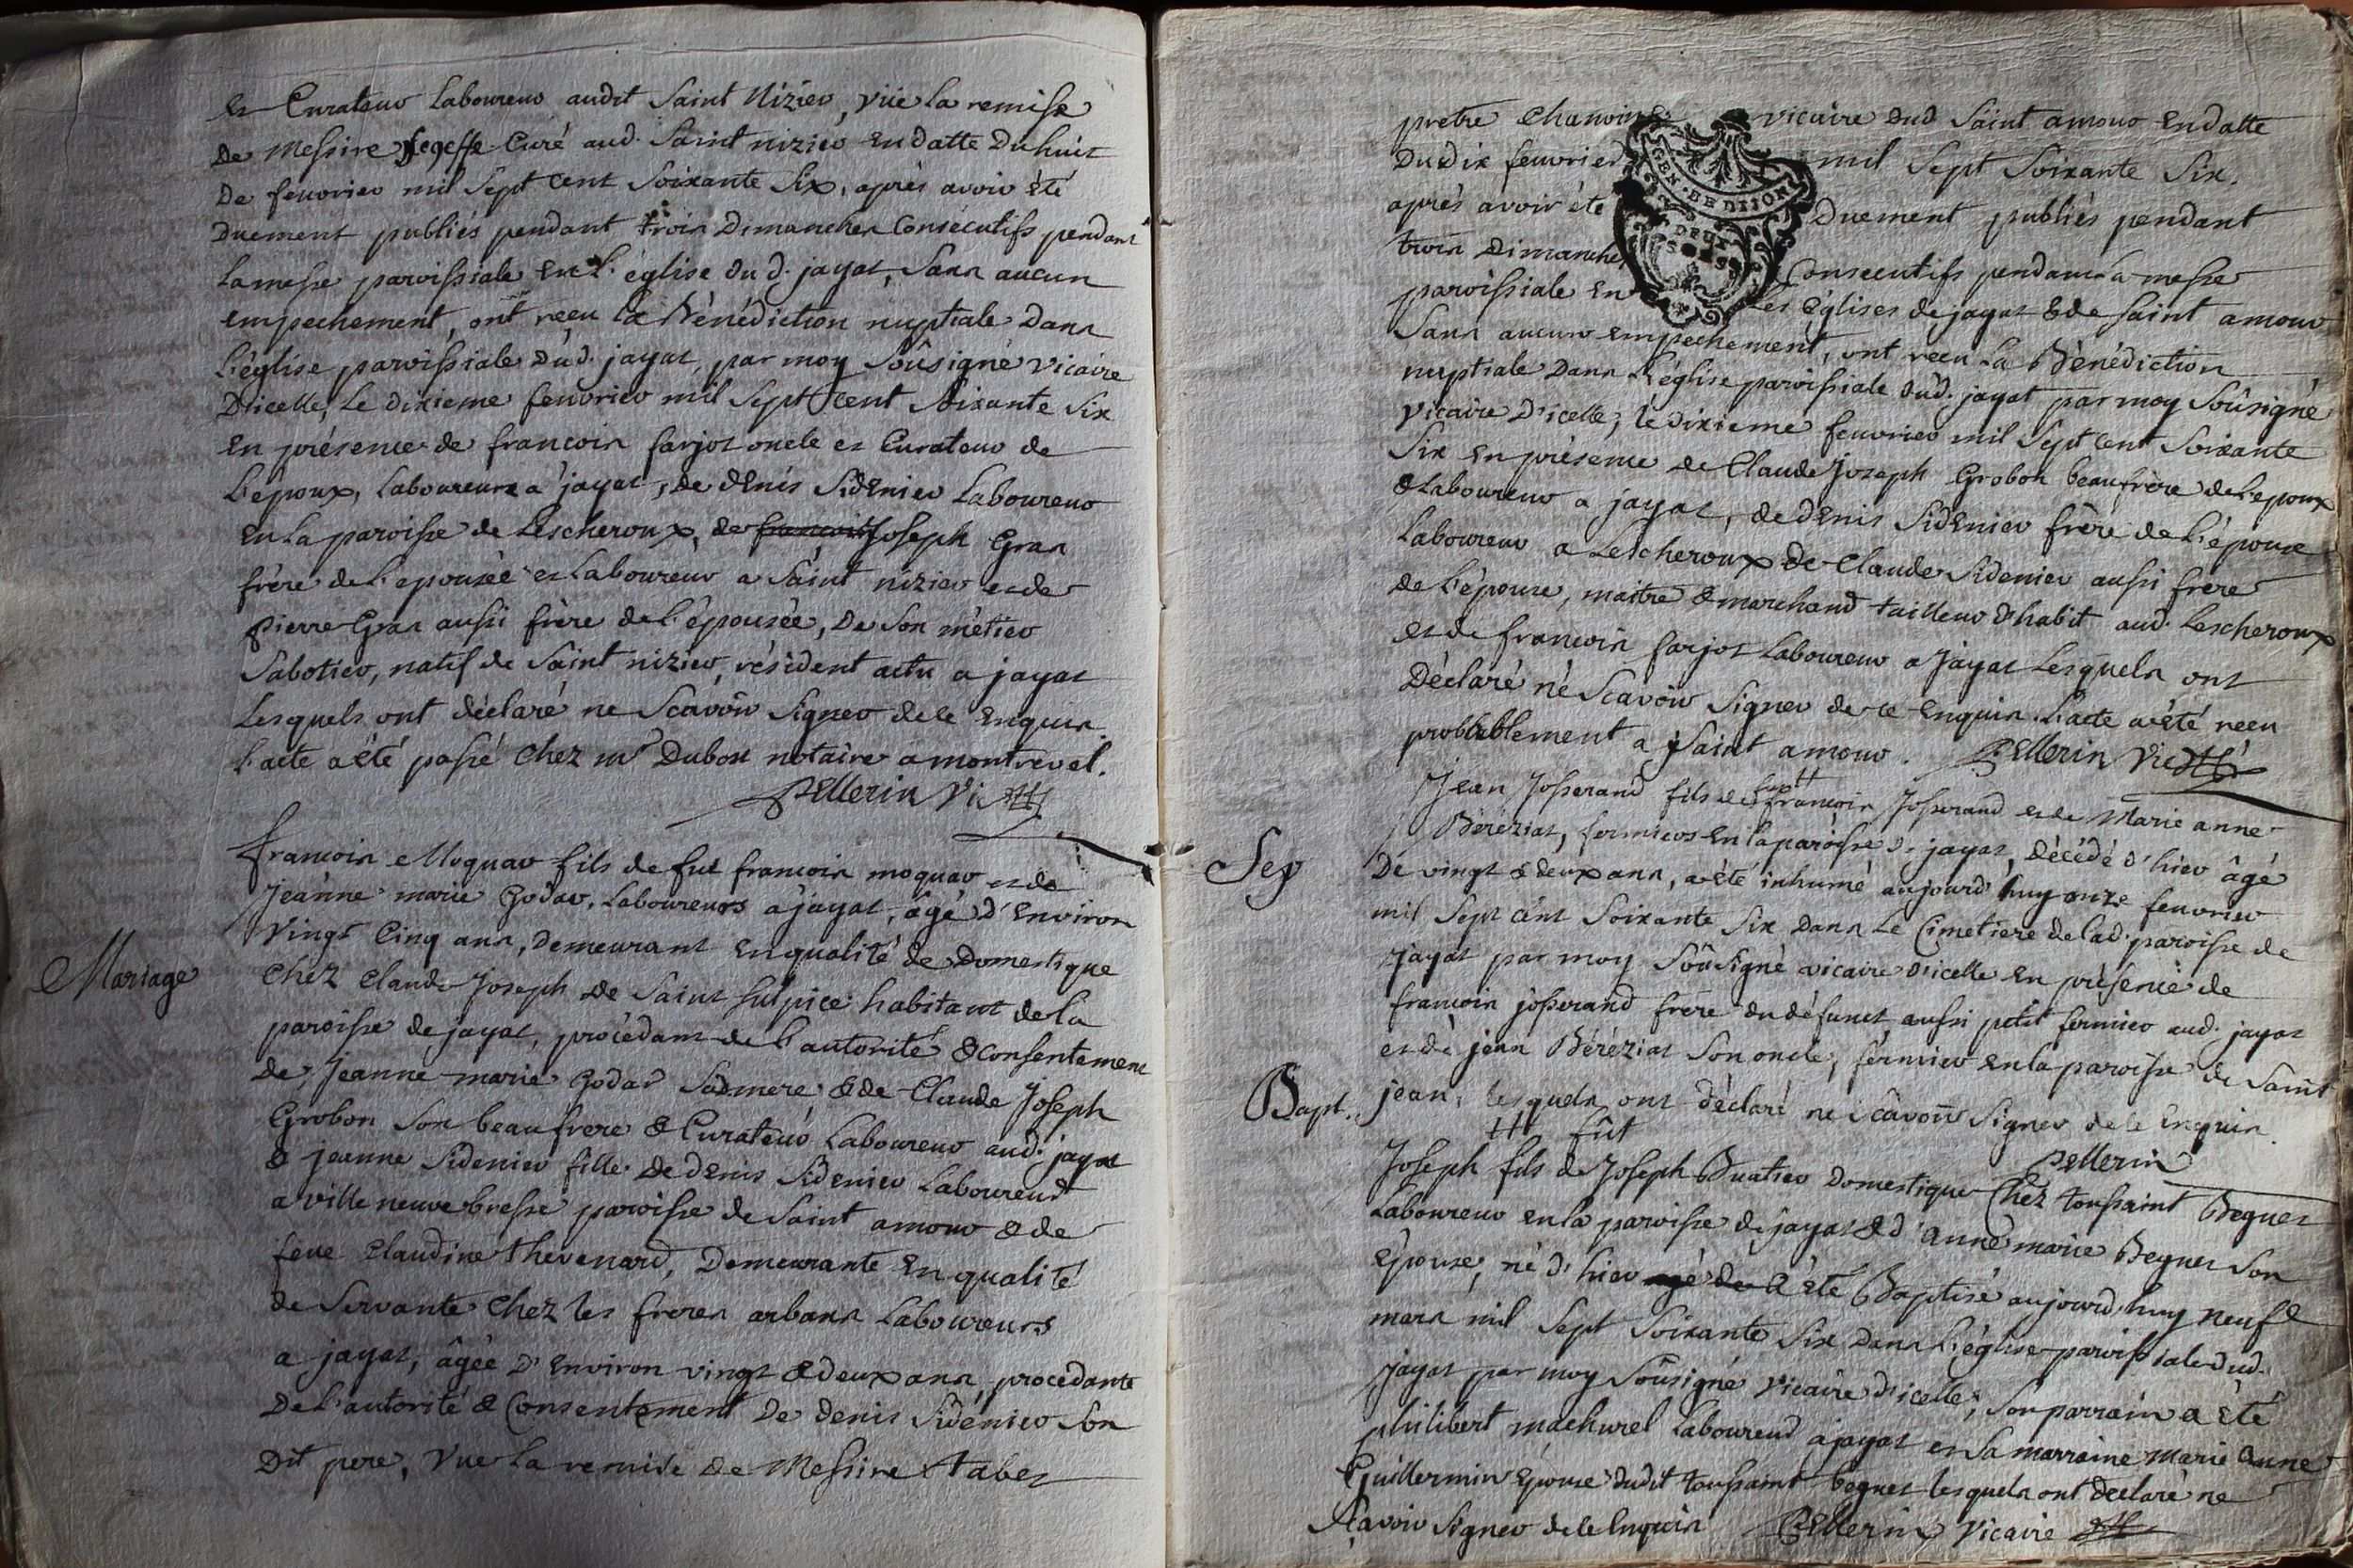 et Curateur Laboureur audit Saint Nizier, vüe la remise
de Messire curé aud. Saint nizier en datte du huit
de feuvrier mil sept cent soixante six, après avoir été
duement publiés pendant trois dimanches consécutifs pendant
la messe paroissiale en l'église du d. jayat, sans aucun
empechement, ont reçu la Bénédiction nuptiale dans
l'église paroissiale dud. jayat, par moy soûsigné vicaire
d'icelle, le dixieme feuvrier mil sept cent soixante six
en présence de francois farjot oncle et Curateur de
l'époux, laboureurs a jayat, de denis sidenier laboureur
en la paroisse de Lescheroux, de francois joseph Gras
frère de l'epousée et laboureur a Saint nizier et de
pierre Gras aussi frère de l'épousée, de son métier
Sabotier, natif de Saint nizier, résident actu a jayat
Lesquels ont déclaré ne scavoir signer de ce enquis
l'acte a été passé chez mr Dubost notaire a montrevel.
Pellerin Vic
Mariage
francois Moquar fils de fut francois moquar et de
jeanne marie Godar, laboureurs a jayat, âgé d'environ
vingt cinq ans, demeurant en qualité de domestique
chez Claude Joseph de Saint sulpice habitant de la
paroisse de jayat, procédant de l'autorité & consentement
de jeanne marie godar sa mere & de Claude Joseph
Grobon son beaufrere & Curateur laboureur aud. jayat
& jeanne Sidenier fille de denis Sidenier laboureur
a ville neuve bresse paroisse de Saint amour & de
feue Claudine thevenard, Demeurante en qualité
de servante chez les freres arbans laboureurs
a jayat, âgée d'environ vingt & deux ans, procedante
de l'autorité & consentement de denis Sidénier son
dit pere, vue la remise de Messire tabez
pretre chanoine vicaire dud Saint amour en datte
du dix feuvrier mil sept soixante six.
après avoir été duement publiés pendant
trois dimanches consecutifs pendant la messe
paroissiale en les églises de jayat & de saint amour
GEN. DE DIJON
DEUX
SOLS
sans aucun empechement, ont reçu la Bénédiction
nuptiale dans l'église paroissiale dud. jayat par moy soûsigné
vicaire d'icelle, le dixieme feuvrier mil sept cent soixante
six en présence de Claude Joseph Grobon beaufrère de l'epoux
& laboureur a jayat, de denis Sidenier frère de l'épouse
laboureur a Lescheroux de Claude Sidenier aussi frere
de l'épouse, maitre & marchand tailleur d'habit aud. Lescheroux
et de francois farjot laboureur a jayat Lesquels ont
déclaré ne scavoir signer de ce enquis. l'acte a été recu
probablement a Saint amour. Pellerin Vic
Sep
Jean Josserand fils de fut francois Josserand et de Marie anne
Béréziat, fermiers en la paroisse de jayat, décédé d'hier âgé
de vingt & deux ans, a été inhumé aujourd'huy onze feuvrier
mil sept cent soixante six dans le Cimetière de lad. paroisse de
jayat par moy soûsigné vicaire d'icelle en présence de
francois josserand frère du défunct aussi petit fermier aud. jayat
et de jean Béréziat son oncle, fermier en la paroisse de Saint
jean, lesquels ont déclaré ne scavoir signer de ce enquis.
fût
Pellerin
Bapt.
Joseph fils de Joseph Buatier domestique chez toussaint Beguet
laboureur en la paroisse de jayat & d'anne marie Beguet son
épouse, né d'hier agé de a été Baptisé aujourd'huy neuf
mars mil sept soixante six dans l'église paroissiale dud.
jayat par moy soûsigné vicaire d'icelle, son parrain a été
philibert machurel laboureur a jayat et sa marraine marie anne
Guillermin épouse dudit toussaint beguet lesquels ont déclaré ne
sçavoir signer de ce enquis Pellerin vicaire